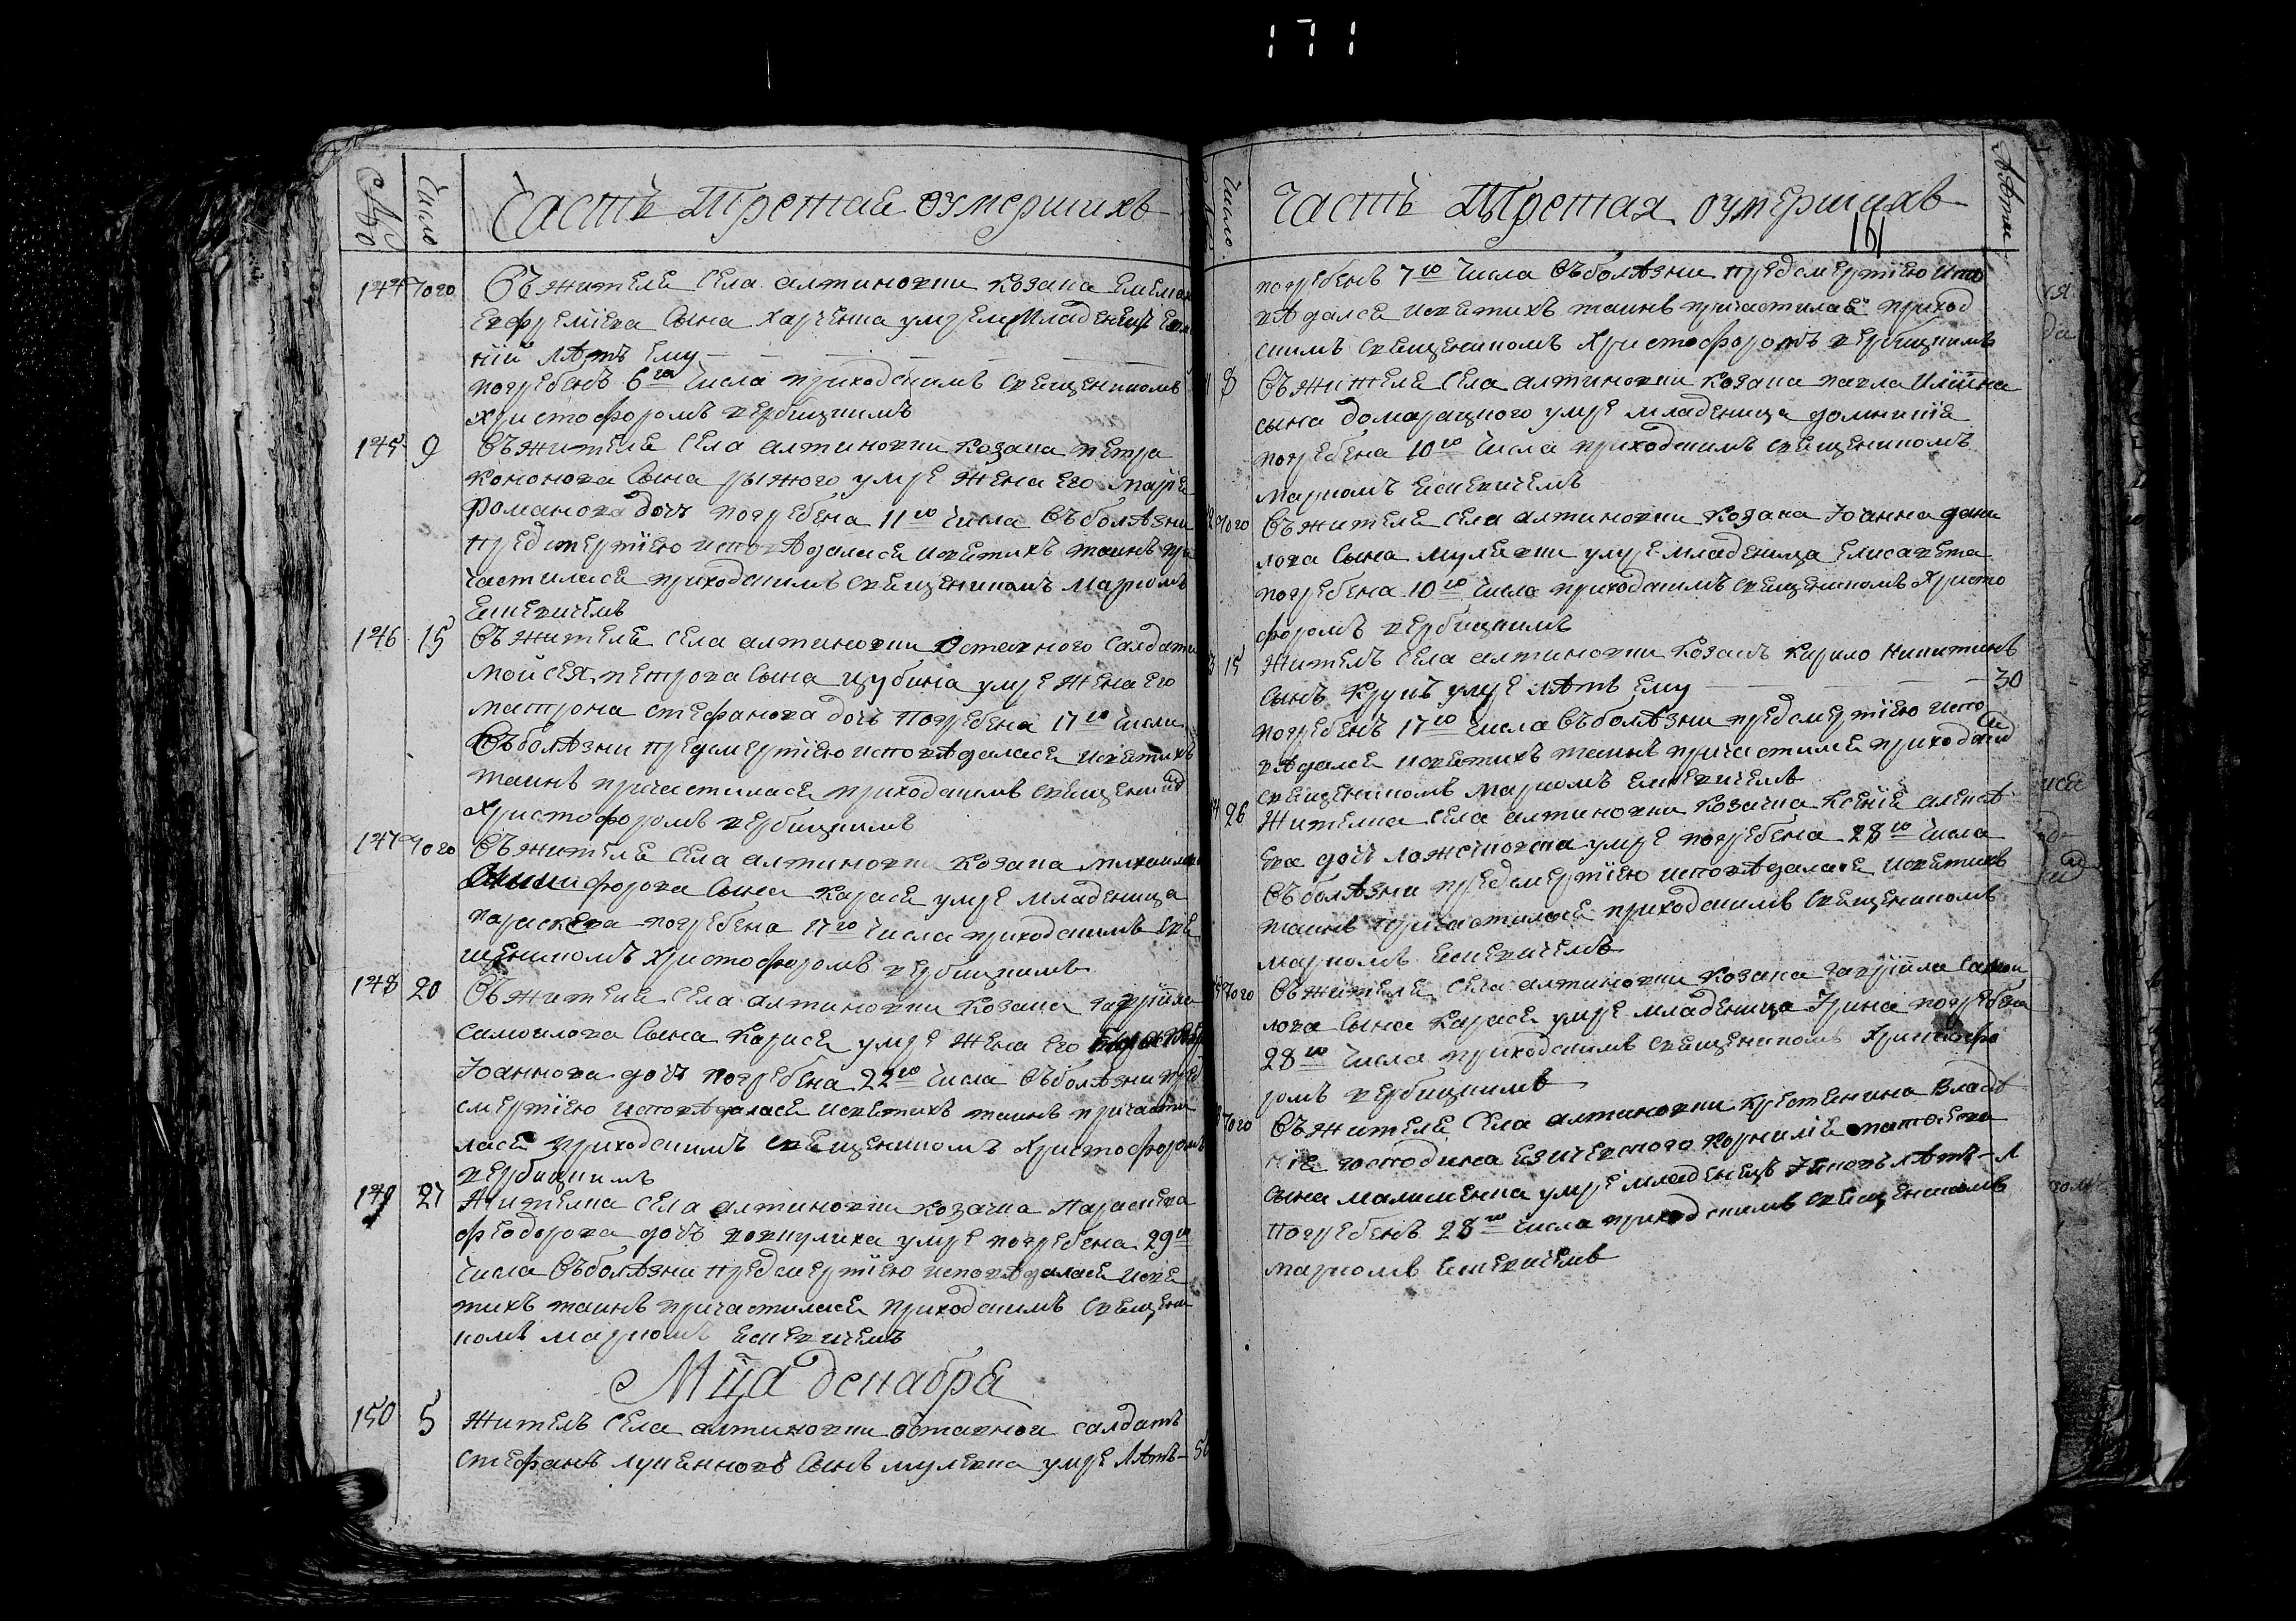 171
Сило
Число
Часть Третая оумершихъ
144 Того Въ жителя села алтиновки козака Емелиан
Евфремïева сына Харченка умре Младенецъ Евге
нïй лѣтъ ему
погребенъ 6го числа приходскимъ священикомъ
Христофоромъ вербицкимъ
145 9 Въ жителя села алтиновки козака петра
кононова сына рыжого умре жена его Марïя
романова дочъ погребена 11го числа въ болѣзни
предсмертïею исповѣдаласа исвятихъ таинъ при
частиласа приходскимъ священикомъ марком
Есиевичемъ
146 15 Въ жителя села алтиновки оставного салдата
Мойсея петрова сына цубина умре жена его
матрона стефанова дочъ погребена 17го числа
въ болѣзни предсмертïею исповѣдаласа исвятихъ
таинъ причастиласа приходскимъ священик
Христофоромъ вербицкимъ
147 Того Въ жителя села алтиновки козака михаила
Онисифорова сына карася умре младеница
параскева погребена 17го числа приходскимъ свя
щеникомъ Христофоромъ вербицкимъ
148 20 Въ жителя села алтиновки козака гаврïила
самоилова сына карася умре жена его
Іоаннова дочъ погребена 22го числа въ болѣзни пред
смертïею исповѣдаласа исвятихъ таинъ причасти
ласа приходскимъ священикомъ Христофором
вербицкимъ
149 27 Жителка села алтиновки козачка параскева
феодорова дочъ умре погребена 29го
числа въ болѣзни предсмертïею исповѣдаласа исвя
тихъ таинъ причастиласа приходскимъ священи
комъ маркомъ Есиевичемъ
Мца декабря
150 5 Житель села алтиновки оставной салдатъ
стефанъ лукянновъ сынъ мулявка умре лѣтъ - 50
Число
Часть Третая оумершихъ
Лѣта
161
погребенъ 7го числа въ болѣзни предсмертïею испо
вѣдалса исвятихъ таинъ причастилса приход
скимъ священикомъ Христофоромъ вербицкимъ
8 Въ жителя села алтиновки козака павла илïина
сына домарацкого умре младеница домникïя
погребена 10го числа приходскимъ священикомъ
маркомъ Есиевичемъ
Того Въ жителя села алтиновки козака Іоанна дани
лова сына мулявки умре младеница Елисавета
погребена 10го числа приходскимъ священикомъ Христо
форомъ вербицкимъ
15 Житель села алтиновки козакъ кирило никитинъ
сынъ крупъ умре лѣтъ ему 30
погребенъ 17го числа въ болѣзни предсмертïею испо
вѣдалса исвятихъ таинъ причастилса приходским
священикомъ маркомъ Есиевичемъ
26 Жителка села алтиновки козачка ксенïя алексѣ
ева дочъ умре погребена 28го числа
въ болѣзни предсмертïею исповѣдаласа исвятихъ
таинъ причастиласа приходскимъ священикомъ
маркомъ Есиевичемъ
Того Въ жителя села алтиновки козака гаврïила самои
лова сына карася умре младеница Ірина погребена
28го числа приходскимъ священикомъ Христофо
ромъ вербицкимъ
Того Въ жителя села алтиновки крестянина владѣ
нïя господина корнилïя матфеева
сына малишенка умре младенецъ Іаковъ лѣтъ - 1
погребенъ 28го числа приходскимъ священикомъ
маркомъ Есиевичемъ